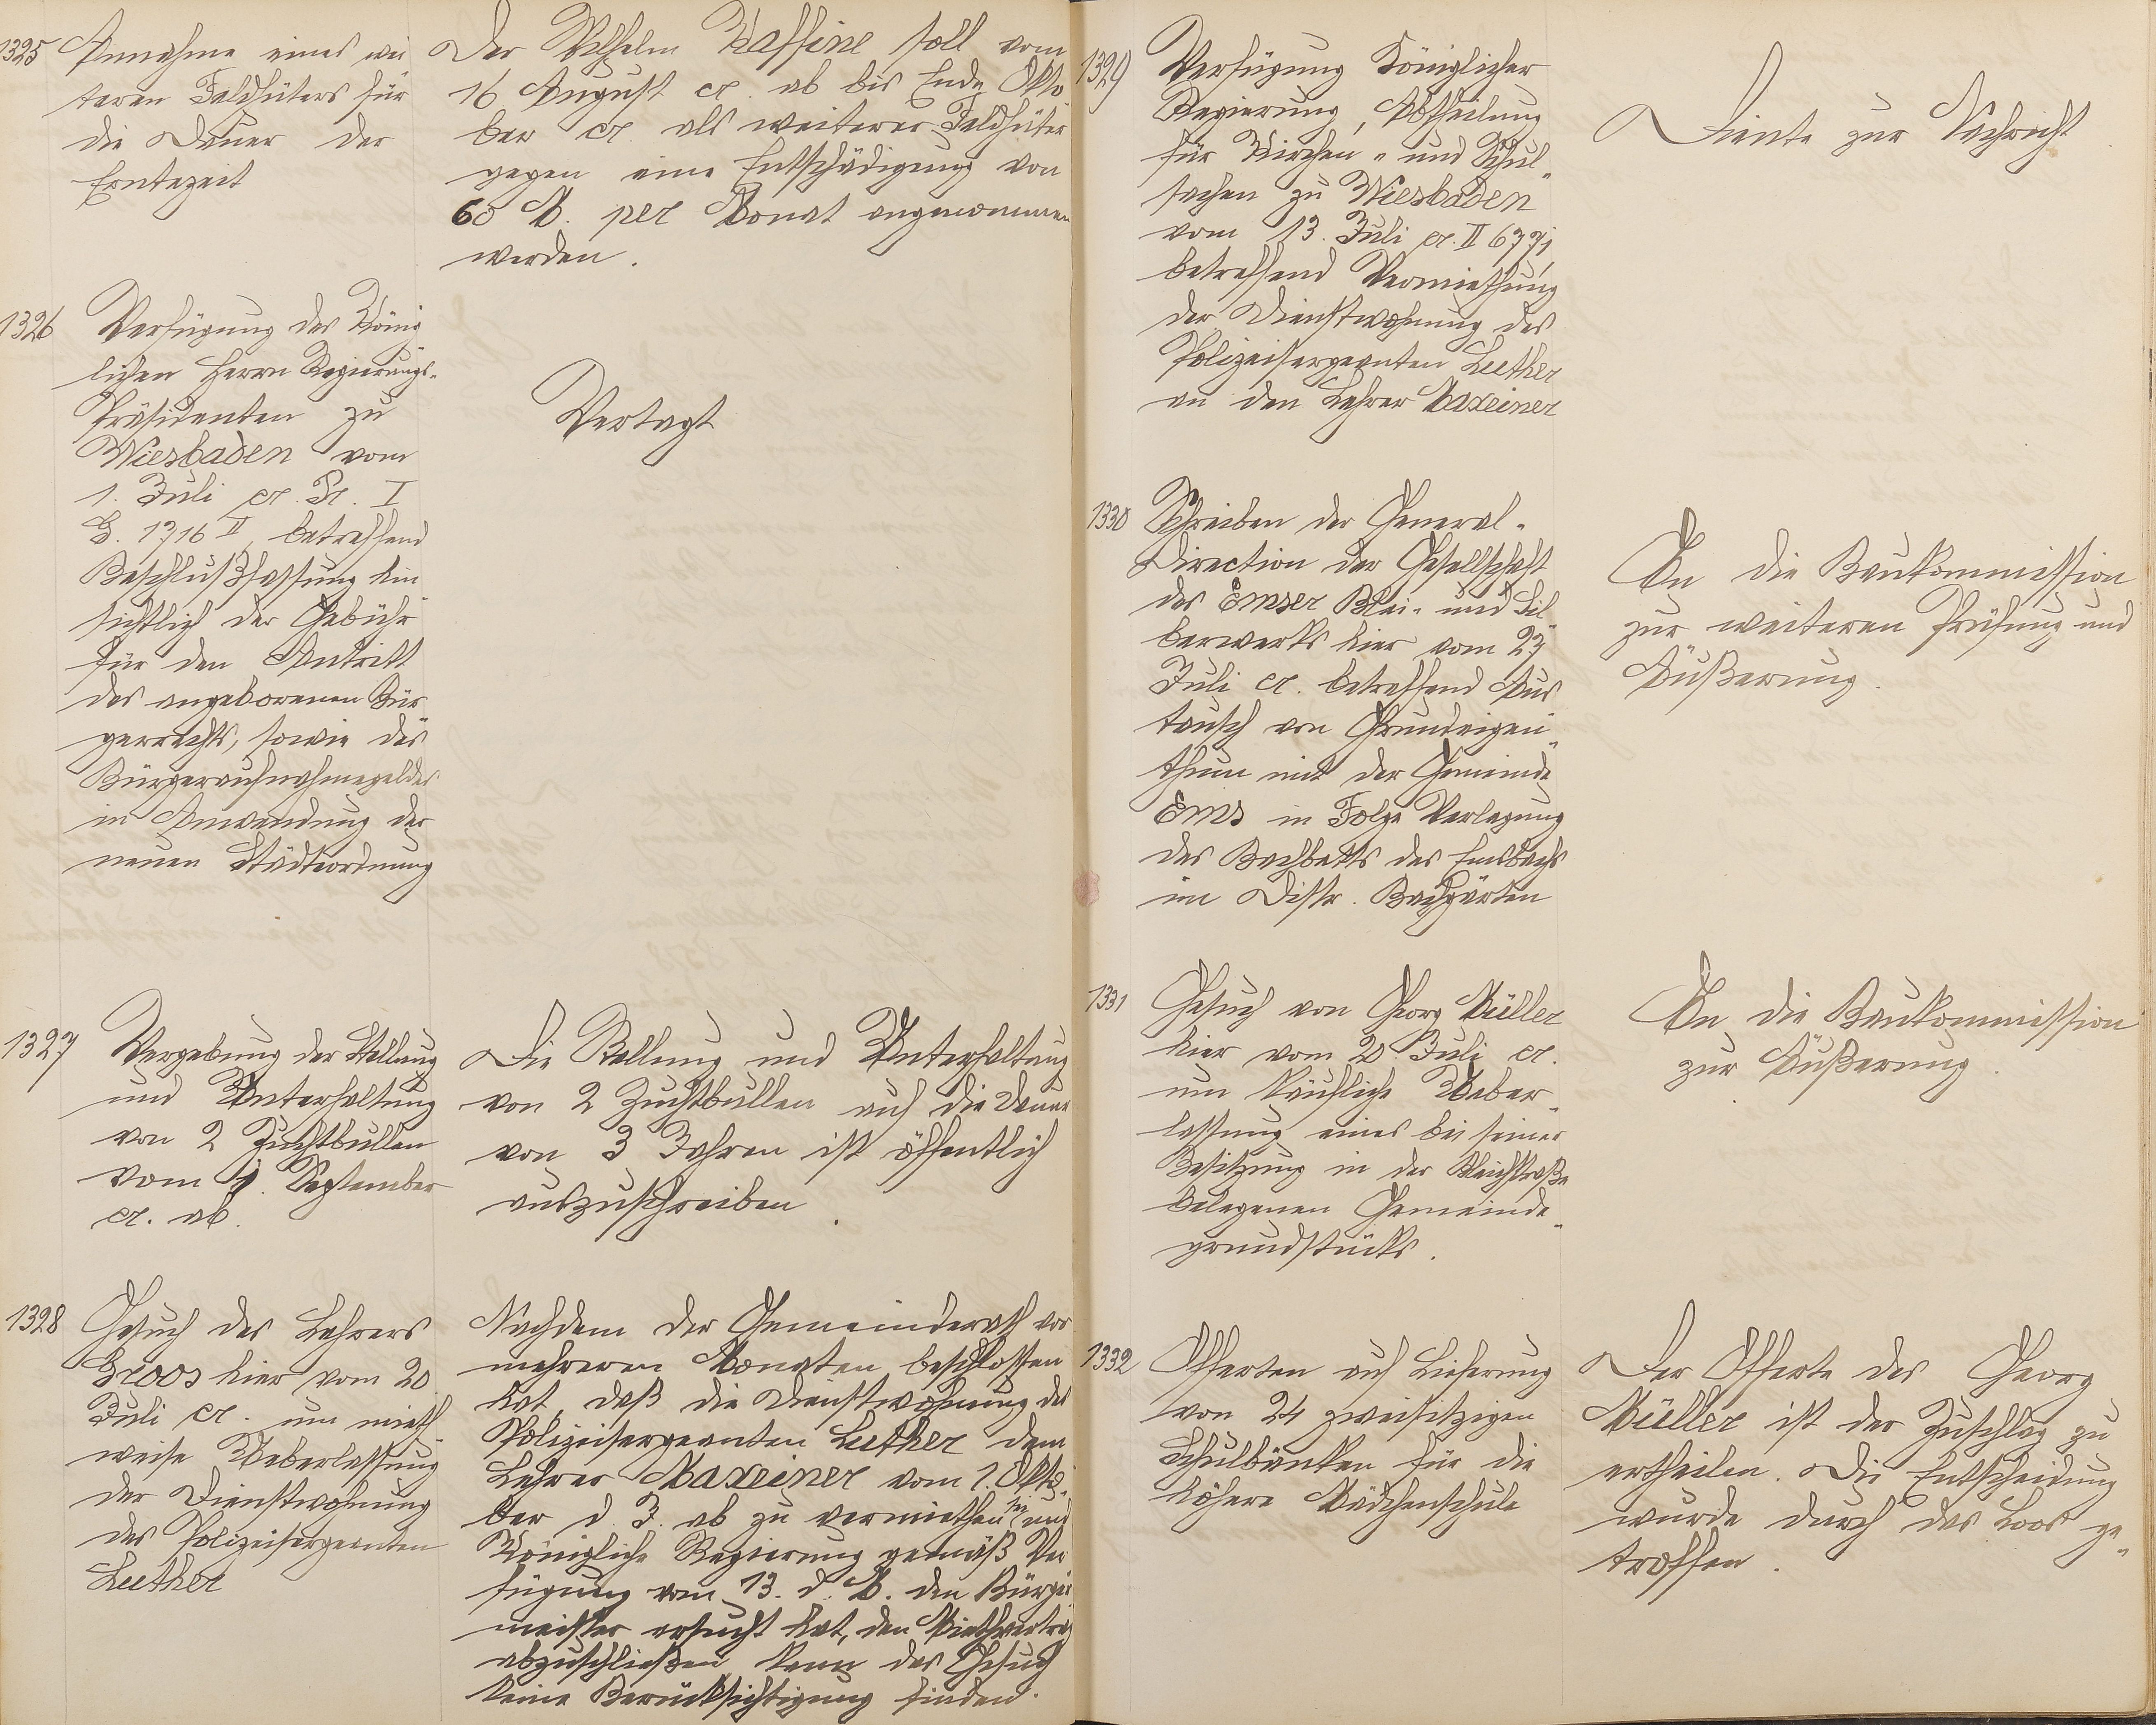 1325
Annahme eines wei
teren Feldhüters für
die Dauer der
Erntezeit
Der Wilhelm Kaffine soll vom
16 August cr. ab bis Ende Okto
ber cr. als weiterer Feldhüter
gegen eine Entschädigung von
60 M. per Monat angenommen
werden.
1326
Verfügung des König
lichen Herrn Regierungs-
Präsidenten zu
Wiesbaden vom
1. Juli cr. Pr. I
G. 1716 II, betreffend
Beschlußfassung hin
sichtlich der Gebühr
für den Antritt
des angeborenen Bür
gerrechts, sowie des
Bürgeraufnahmegeldes
in Anwendung der
neuen Städteordnung
Vertagt
1327
Vergebung der Stellung
und Unterhaltung
von 2 Zuchtbullen
vom 1. September
cr. ab.
Die Stellung und Unterhaltung
von 2 Zuchtbullen auf die Dauer
von 3 Jahren ist öffentlich
auszuschreiben.
1328
Gesuch des Lehrers
Groos hier vom 20
Juli cr. um mieth
weise Ueberlassung
der Dienstwohnung
des Polizeisergeanten
Luther
Nachdem der Gemeinderath vor
mehreren Monaten beschlossen
hat, daß die Dienstwohnung des
Polizeisergeanten Luther dem
Lehrer Maxeiner vom 1. Okto-
ber d. J. ab zu vermiethen und
Königliche Regierung gemäß Ver
fügung vom 13. d. M. den Bürger
meister ersucht hat, den Miethvertrag
abzuschließen kann das Gesuch
keine Berücksichtigung finden.
1329
Verfügung Königlicher
Regierung, Abtheilung
für Kirchen- und Schul-
sachen zu Wiesbaden
vom 13. Juli cr. II 6771,
betreffend Vermiethung
der Dienstwohnung des
Polizeisergeanten Luther
an den Lehrer Maxeiner
Diente zur Nachricht
1330
Schreiben der General-
Direction der Gesellschaft
des Emser Blei- und Sil-
berwerks hier vom 27
Juli cr. betreffend Aus
tausch von Grundeigen-
thum mit der Gemeinde
Ems in Folge Verlegung
des Bachbetts des Emsbachs
im Distr. Bachgärten
An die Baukommission
zur weiteren Prüfung und
Äußerung.
1331
Gesuch von Georg Müller
hier vom 20. Juli cr.
um käufliche Ueber-
lassung eines bei seiner
Besitzung in der Bleichstraße
belegenen Gemeinde-
grundstücks.
An die Baukommission
zur Äußerung.
1332
Offerten auf Lieferung
von 24 zweisitzigen
Schulbänken für die
höhere Mädchenschule
Der Offerte des Georg
Müller ist der Zuschlag zu
ertheilen. Die Entscheidung
wurde durch das Loos ge-
troffen.